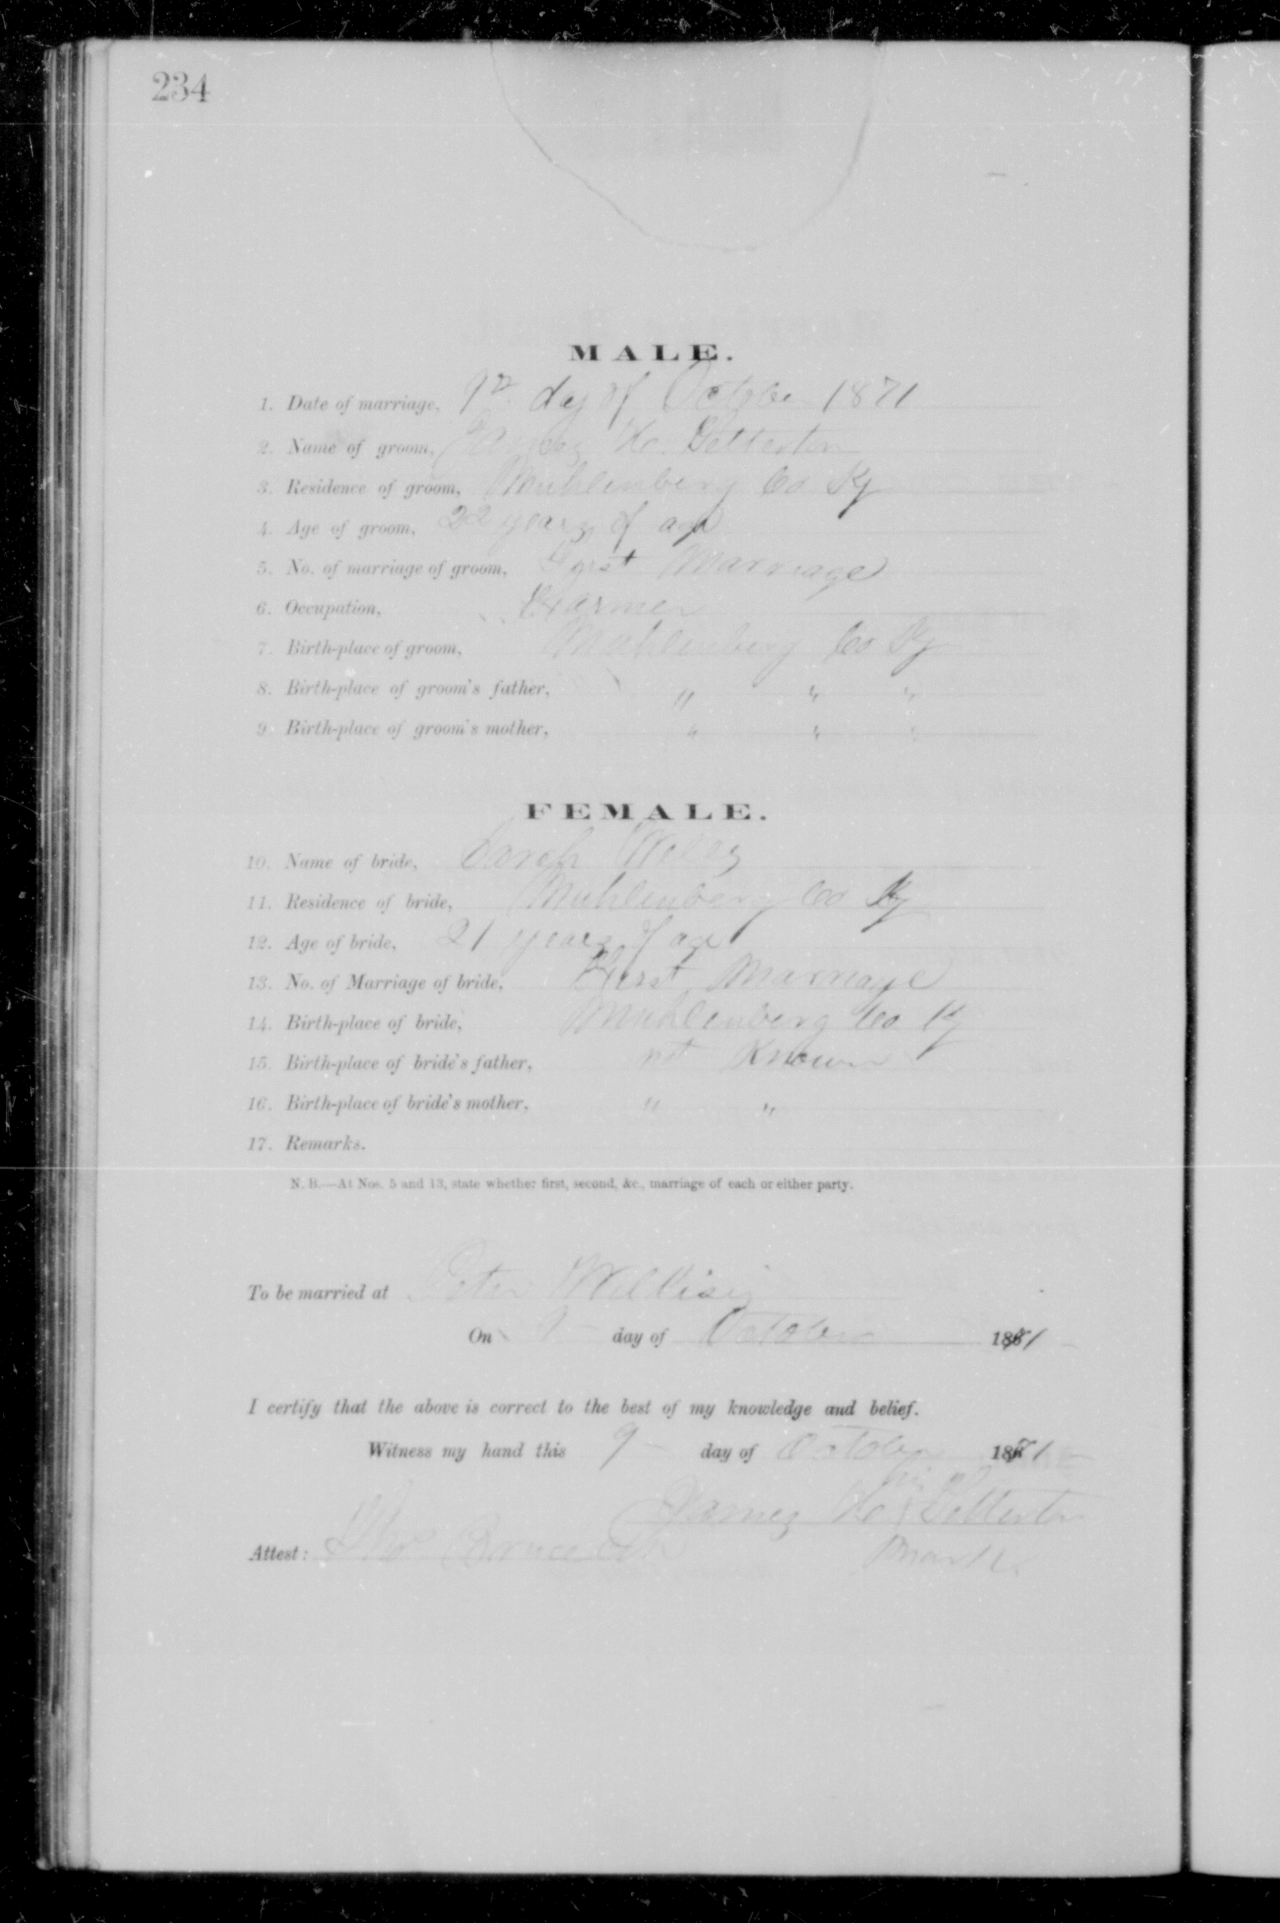 234
MALE.
1. Date of marriage, 9th day of October 1871
2. Name of groom, James
3. Residence of groom, Muhlenberg Co Ky
4. Age of groom, 22 years of age
5. No. of marriage of groom, First Marriage
6. Occupation, Farmer
7. Birth-place of groom, Muhlenberg Co Ky
8. Birth-place of groom's father, " " "
9 Birth-place of groom's mother, " " "
FEMALE.
10. Name of bride, Sarah
11. Residence of bride, Muhlenberg Co Ky
12. Age of bride, 21 years of age
13. No. of Marriage of bride, First Marriage
14. Birth-place of bride, Muhlenberg Co Ky
15. Birth-place of bride's father, not Known
16. Birth-place of bride's mother, " "
17. Remarks.
N. B.—At Nos. 5 and 13, state whether first, second, &c., marriage of each or either party.
To be married at Peter
On 9 day of October 1871
I certify that the above is correct to the best of my knowledge and belief.
Witness my hand this 9 day of October 1871
his
James
Attest: Thos Bruce mark